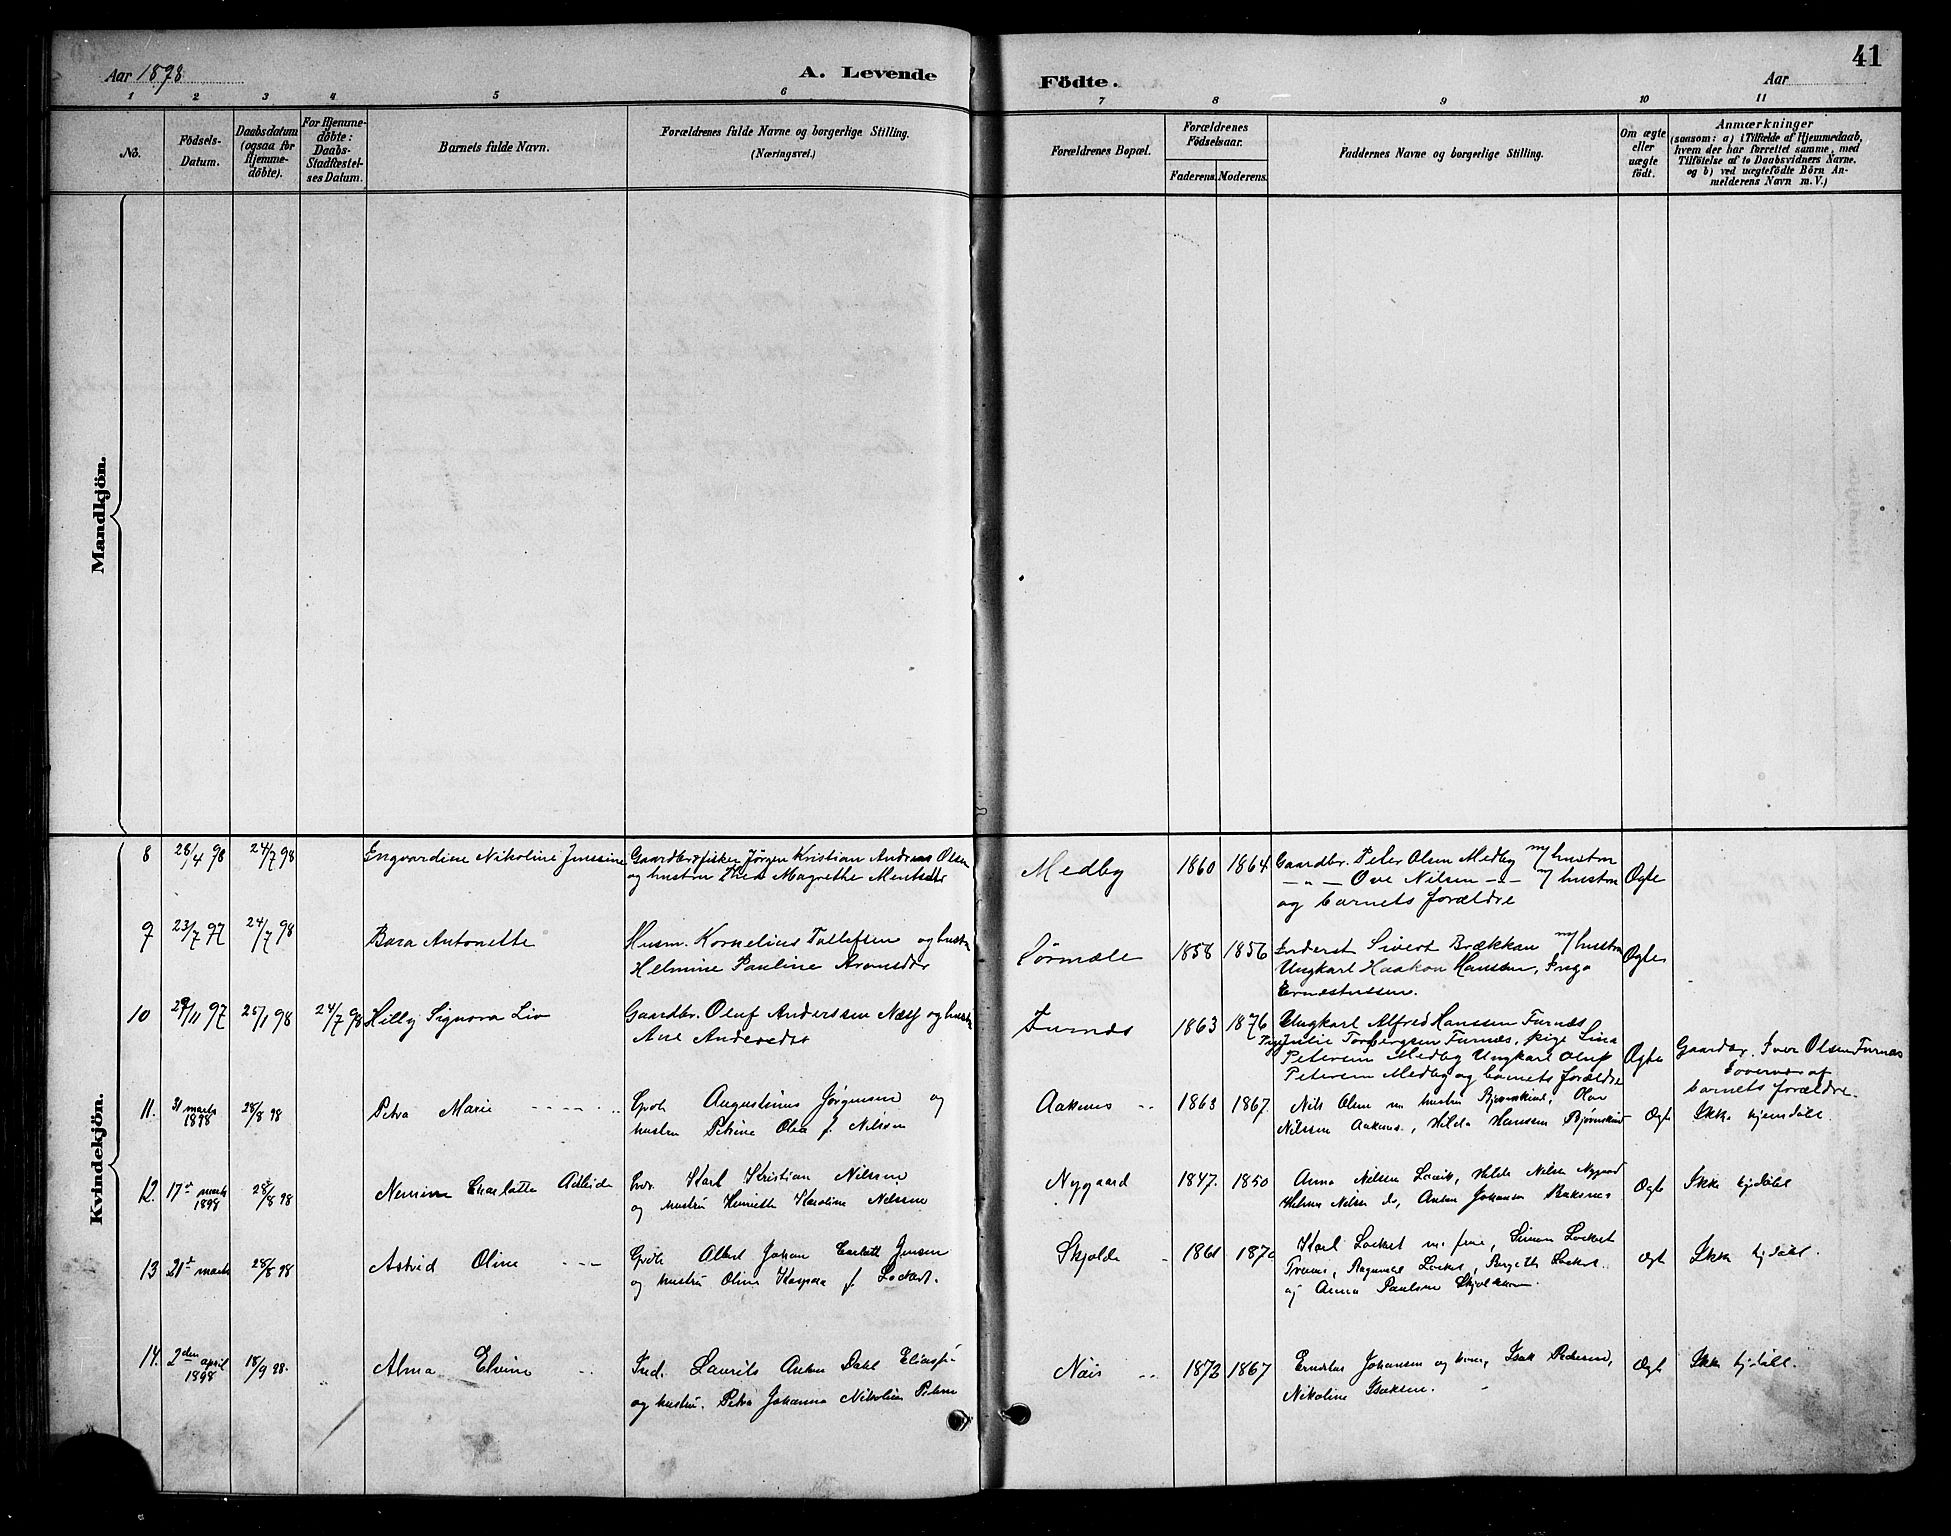 Aar 1898
A. Levende
Födte.
Aar
41
1 2 3 4 5 6 7 8 9 10 11
No.
Födsels-
Datum.
Daabsdatum
(ogsaa for
Hjemme-
döbte).
For Hjemme-
döbte:
Daabs-
Stadfæstel-
ses Datum.
Barnets fulde Navn.
Forældrenes fulde Navne og borgerlige Stilling.
(Næringsvei.)
Forældrenes Bopæl.
Forældrenes
Födselsaar.
Faderens.
Moderens.
Faddernes Navne og borgerlige Stilling.
Om ægte
eller
uægte
födt.
Anmærkninger
(saasom: a) i Tilfælde af Hjemmedaab,
hvem der har forrettet samme, med
Tilföielse af to Daabsvidners Navne,
og b) ved uægtefödte Börn An-
melderens Navn m. V.)
Mandkjön.
Kvindekjön.
8 28/4 98 24/7 98 Engvardine Nikoline Jenssine
Gaardbr. fisker Jørgen Kristian Andreas Olsen
og hustru Thea Magrethe Mentsdtr
Medby 1860 1864
Gaardbr. Peter Olsen Medby m/ hustru
— " — Ove Nilsen — " — m/ hustru
og barnets forældre
Ægte
9 23/7 97 24/7 98 Bara Antonette
Husm. Kornelius Tollefsen og hustru
Helmine Pauline Aronsdtr
Sørmæle 1858 1856
Sivert Brækkan m/ hustru
Ungkarl Haakon Hansen, Inga
Ernæstussen.
Ægte
10 29/11 97 25/1 98 24/7 98 Hilly Signora Liv
Gaardbr. Oluf Anderssen Næss og hustru
Ane Andersdtr
Furnæs 1863 1876
Ungkarl Alfred Hanssen Furnæs
Pig Julie Torbergsen Furnæs, pige Lina
Petersen Medby Ungkarl Oluf
Petersen Medby og barnets forældre
Ægte
Gaardbr. Iver Olsen Furnæs
i overvær af
barnets forældre.
11. 31 marts
1898
28/8 98
Petra Marie
Augustinus Jørgensen og
hustru Petrine Olea f. Nilssen
Aaknes 1863 1867.
Nils Olsen m hustru Bjørnskind, Olav
Nilssen Aaknes, Hilda Hanssen Bjørnskind
Ægt
Ikke hjemdøbt.
12. 17de marts
1898
28/8 98
Charlotte Adleide
Karl Kristian Nilssen
og hustru Henriette Karoline Nelssen
Nygaard 1847. 1850
Anna Nilsen Lovik, Hilda Nilsen Nygaard
Helmer Nilsen do, Anton Johansen Baksnes
Ægt
Ikke hjdøbt
13 21de marts 28/8 98
Astrid Oline
Albert Johan Jensen
og hustru Oline Kaspara f. Lockert.
Skjolde 1861 1870
Karl Lockert m. frue, Simon Lockert
Ragnvald Lockert, Bergithe Lockert
og Anna Paulsen
ægt
Ikke hjdøbt.
14. 2den april
1898
18/9 98.
Alma Elvine
Ind. Laurits Anton Dahl
og hustru. Petra Johanna Nikoline
Nøis 1872 1867
Johansen og kone, Isak Pedersen,
Nikoline Isaksen.
Ægt
Ikke hjdøbt.